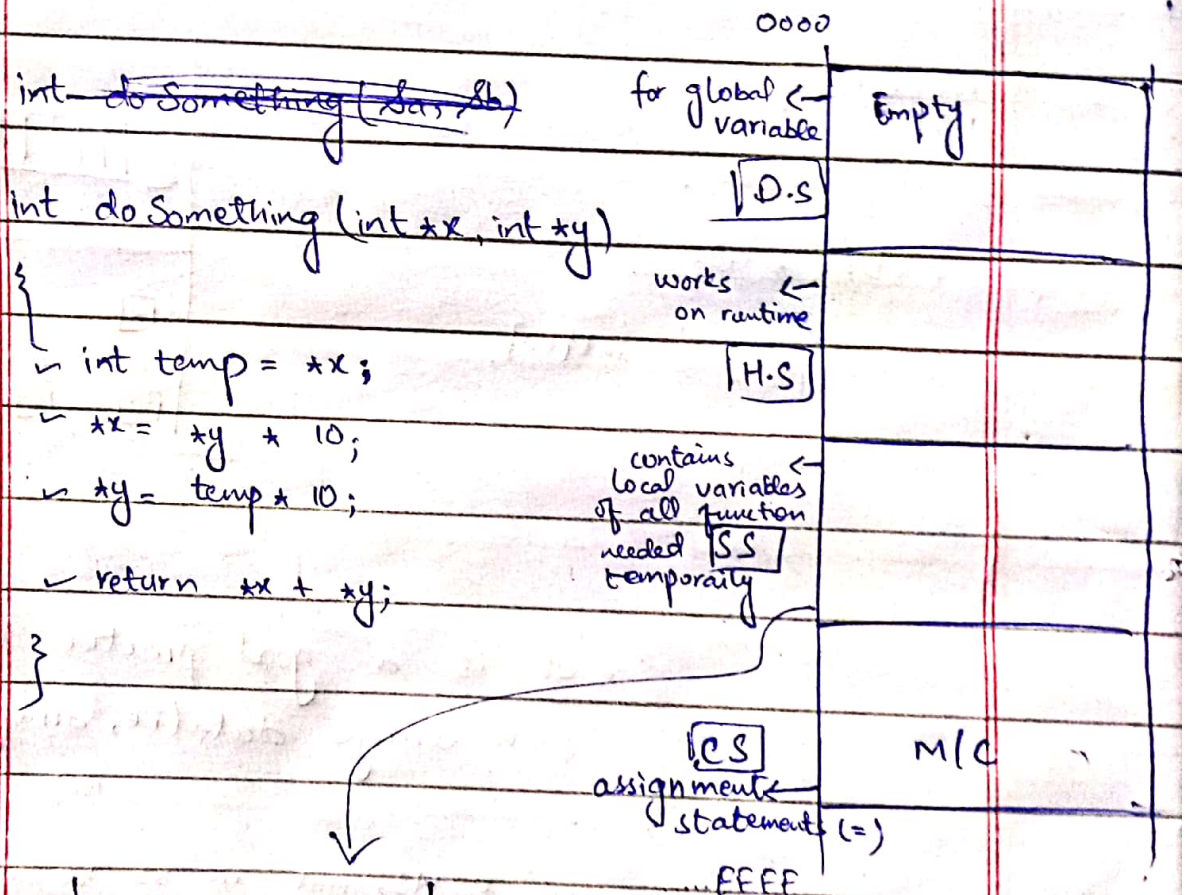 0000
int do Something (&a, &b)
for global
variable
Empty
D.S
int do Something (int *x, int *y)
{
works
on runtime
H.S
int temp = *x;
*x = *y * 10;
*y = temp * 10;
contains
local variables
of all function
needed SS
temporaily
return *x + *y;
}
CS
M/C
assignment
statements (=)
FFFF